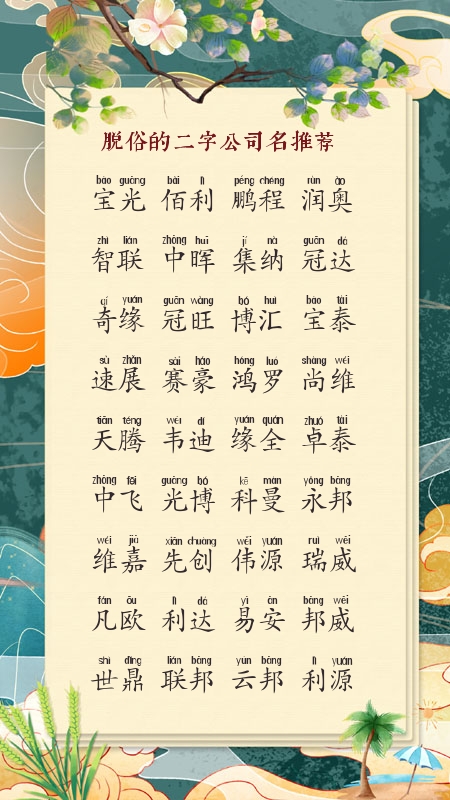 脱俗的二字公司名推荐
bǎo guāng bǎi lì péng chéng rùn ào
宝光 佰利 鹏程 润奥
zhì lián zhōng huī jí nà guān dá
智联 中晖 集纳 冠达
qí yuán guān wàng bó huì bǎo tài
奇缘 冠旺 博汇 宝泰
sù zhǎn sài háo hóng luó shàng wéi
速展 赛豪 鸿罗 尚维
tiān téng wéi dí yuán quán zhuó tài
天腾 韦迪 缘全 卓泰
zhōng fēi guāng bó kē màn yǒng bāng
中飞 光博 科曼 永邦
wéi jiā xiān chuàng wěi yuán ruì wēi
维嘉 先创 伟源 瑞威
fán ōu lì dá yì ān bāng wēi
凡欧 利达 易安 邦威
shì dǐng lián bāng yún bāng lì yuán
世鼎 联邦 云邦 利源